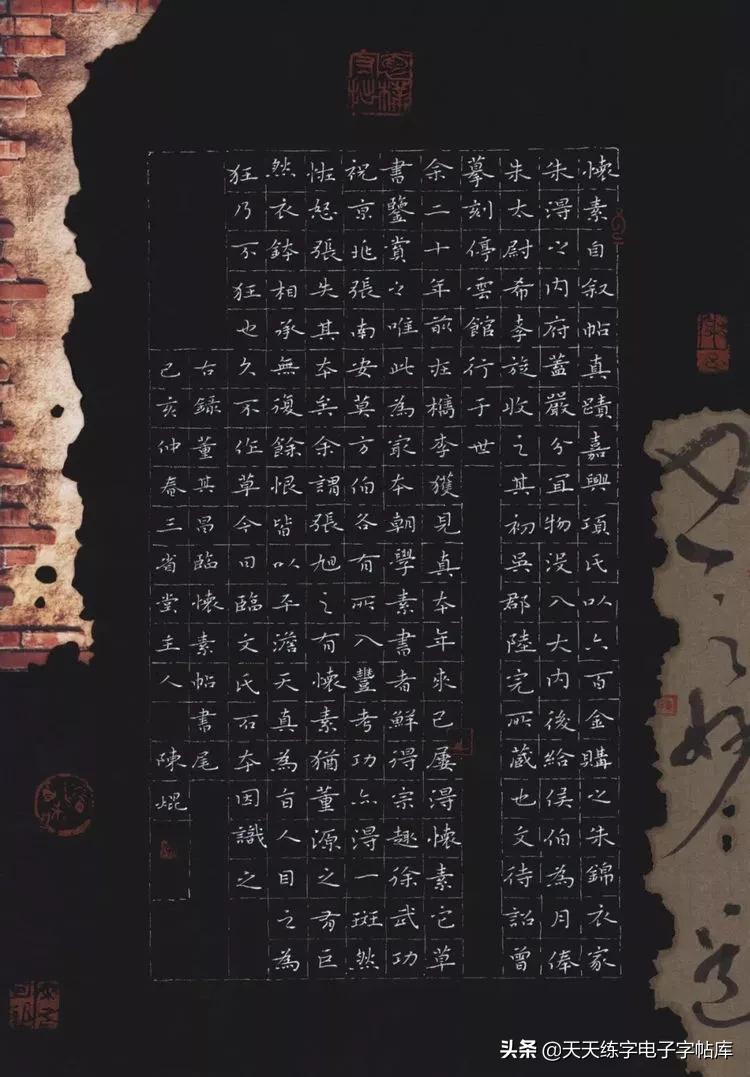 懷素自叙帖真蹟嘉興項氏以六百金購之朱錦衣家
朱得之内府蓋嚴分宜物没入大内後給侯伯為月俸
朱太尉希孝旋收之其初吳郡陸完所藏也文待詔曾
摹刻停雲館行于世
余二十年前在檇李獲見真本年來已屢得懷素它草
書鑒賞之唯此為最本朝學素書者鮮得宗趣徐武功
祝京兆張南安莫方伯各有所入豐考功亦得一斑然
性怒張失其本矣余謂張旭之有懷素猶董源之有巨
然衣鉢相承無復餘恨皆以平澹天真為旨人目之為
狂乃不狂也久不作草今日臨文氏石本因識之
右録董其昌臨懷素帖書尾
己亥仲春三省堂主人 陳焜
头条 @天天练字电子字帖库